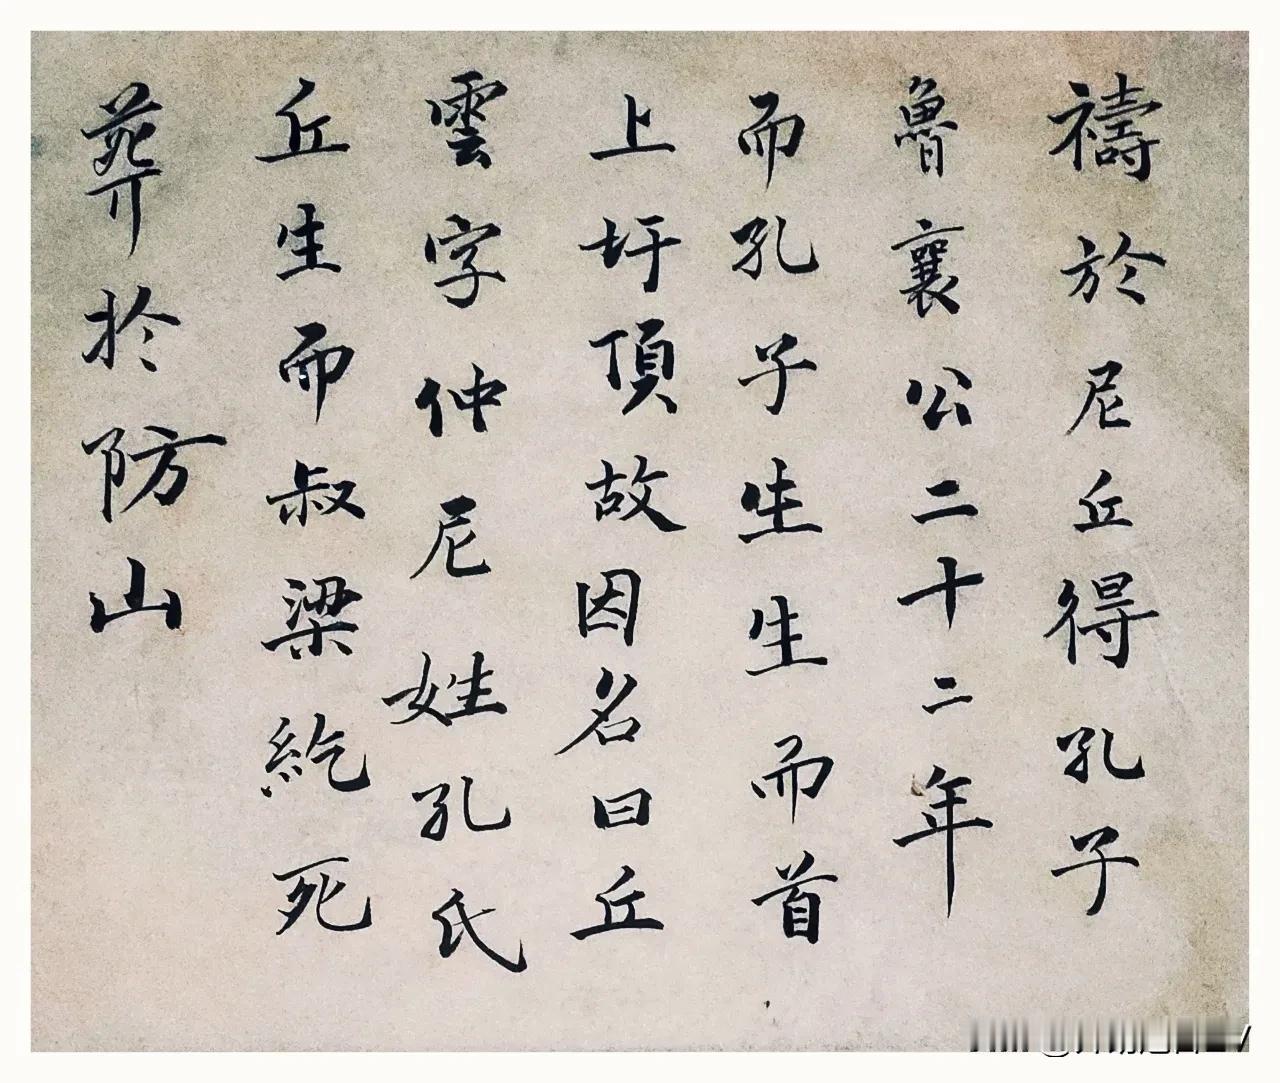 禱於尼丘得孔子
魯襄公二十二年
而孔子生生而首
上圩頂故因名曰丘
雲字仲尼姓孔氏
丘生而叔梁紇死
葬於防山